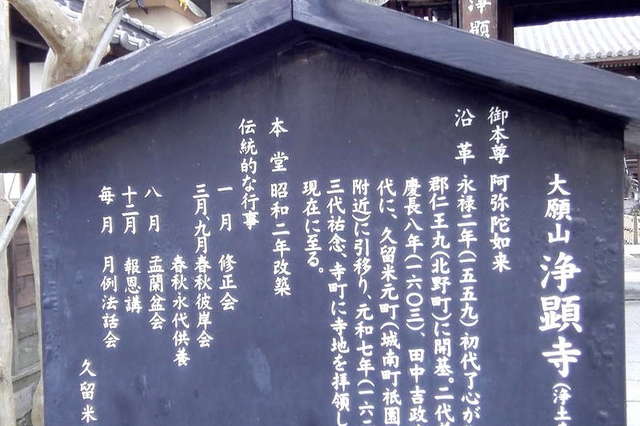 浄顕
大願山 浄顕寺（浄土
御本尊 阿弥陀如来
沿革 永禄二年（一五五九）初代了心が
郡仁王丸（北野町）に開基。二代
慶長八年（一六〇三）、田中吉政
代に、久留米元町（城南町祇園
附近）に引移り、元和七年（一六二
三代祐念、寺町に寺地を拝領し
現在に至る。
本堂 昭和二年改築
伝統的な行事
一月 修正会
三月、九月春秋彼岸会
春秋永代供養
八月 盂蘭盆会
十二月 報恩講
毎月 月例法話会
久留米